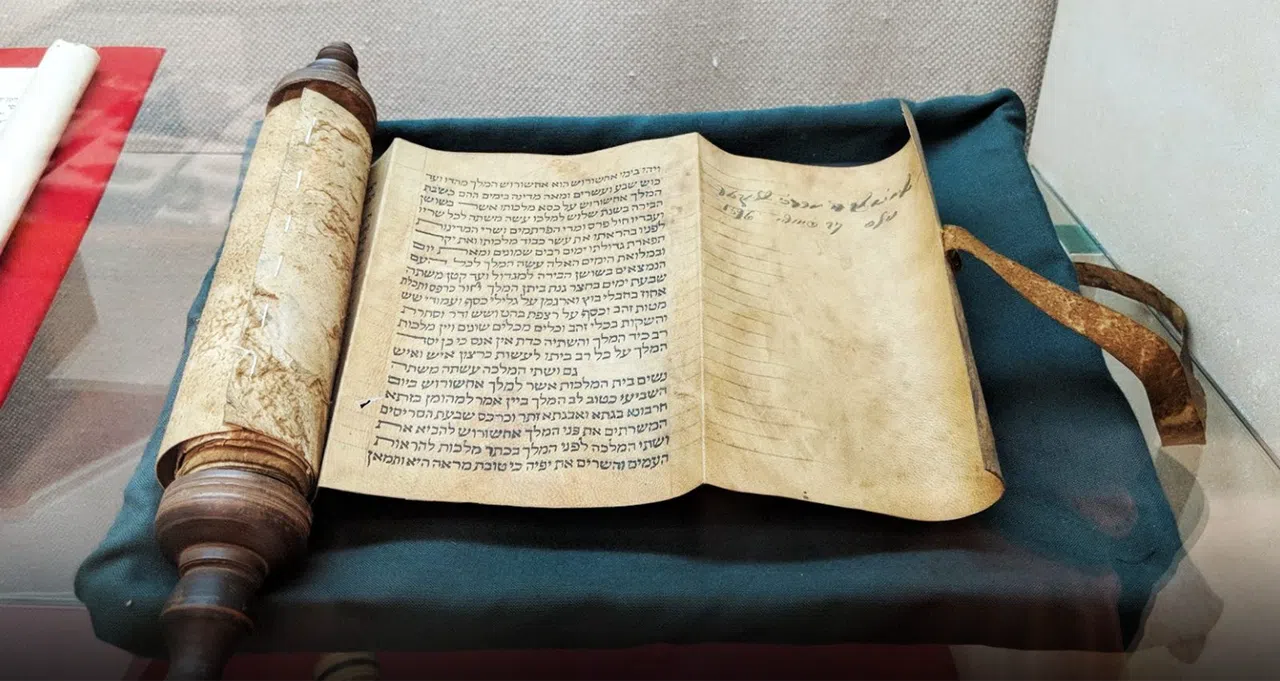 ויהי בימי אחשורוש הוא אחשורוש המלך מהדו ועד
כוש שבע ועשרים ומאה מדינה בימים ההם כשבת
המלך אחשורוש על כסא מלכותו אשר בשושן
הבירה בשנת שלוש למלכו עשה משתה לכל שריו
ועבדיו חיל פרס ומדי הפרתמים ושרי המדינות
לפניו בהראתו את עשר כבוד מלכותו ואת יקר
תפארת גדולתו ימים רבים שמונים ומאת יום
ובמלואת הימים האלה עשה המלך לכל העם
הנמצאים בשושן הבירה למגדול ועד קטן משתה
שבעת ימים בחצר גנת ביתן המלך חור כרפס ותכלת
אחוז בחבלי בוץ וארגמן על גלילי כסף ועמודי שש
מטות זהב וכסף על רצפת בהט ושש ודר וסחרת
והשקות בכלי זהב וכלים מכלים שונים ויין מלכות
רב כיד המלך והשתיה כדת אין אנס כי כן יסד
המלך על כל רב ביתו לעשות כרצון איש ואיש
גם ושתי המלכה עשתה משתה
נשים בית המלכות אשר למלך אחשורוש ביום
השביעי כטוב לב המלך ביין אמר למהומן בזתא
חרבונא בגתא ואבגתא זתר וכרכס שבעת הסריסים
המשרתים את פני המלך אחשורוש להביא את
ושתי המלכה לפני המלך בכתר מלכות להראות
העמים והשרים את יפיה כי טובת מראה היא ותמאן